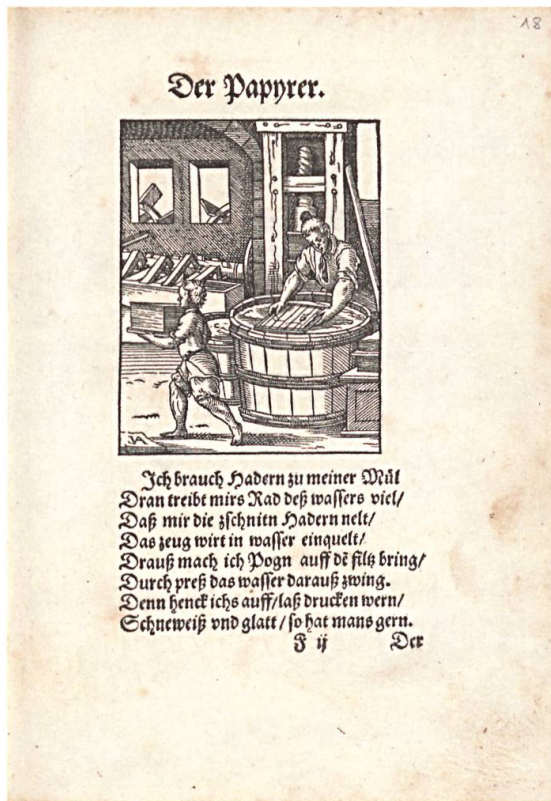 18
Der Papyrer.
Ich brauch Hadern zu meiner Mül
Dran treibt mirs Rad deß wassers viel/
Daß mir die zschnitn Hadern nelt/
Das zeug wirt in wasser einquelt/
Drauß mach ich Pogn auff dē filtz bring/
Durch preß das wasser darauß zwing.
Denn henck ichs auff/laß drucken wern/
Schneweiß vnd glatt/so hat mans gern.
F ij Der